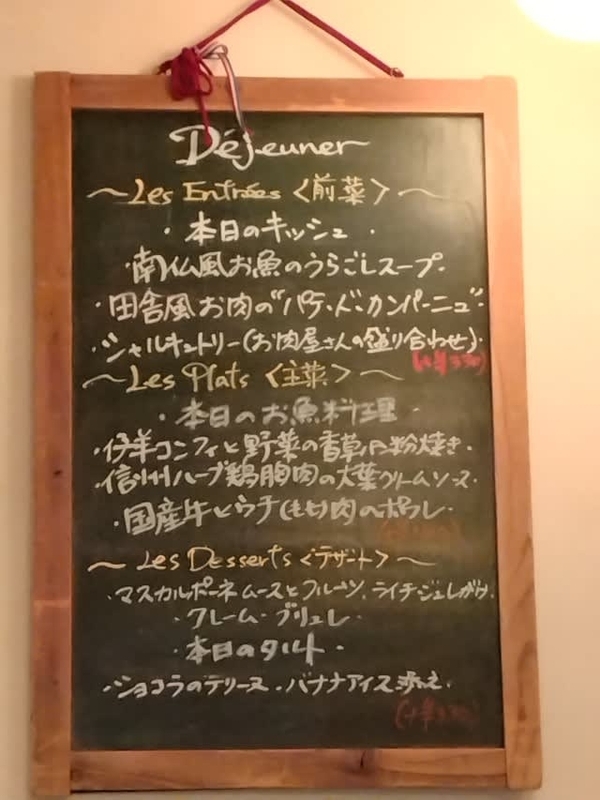 Déjeuner
～Les Entrées〈前菜〉～
・本日のキッシュ・
・南仏風お魚のうらごしスープ・
・田舎風お肉の"パテ・ド・カンパーニュ"・
・シャルキュトリー(お肉屋さんの盛り合わせ)・
(+¥330)
～Les Plats〈主菜〉～
・本日のお魚料理・
・仔羊コンフィと野菜の香草パン粉焼き・
・信州ハーブ鶏胸肉の大葉クリームソース・
・国産牛とうチ(もも)肉のポワレ・
～Les Desserts〈デザート〉～
・マスカルポーネムースとフルーツ、ライチジュレがけ・
・クレーム・ブリュレ・
・本日のタルト・
・ショコラのテリーヌ・バナナアイス添え・
(+¥330)